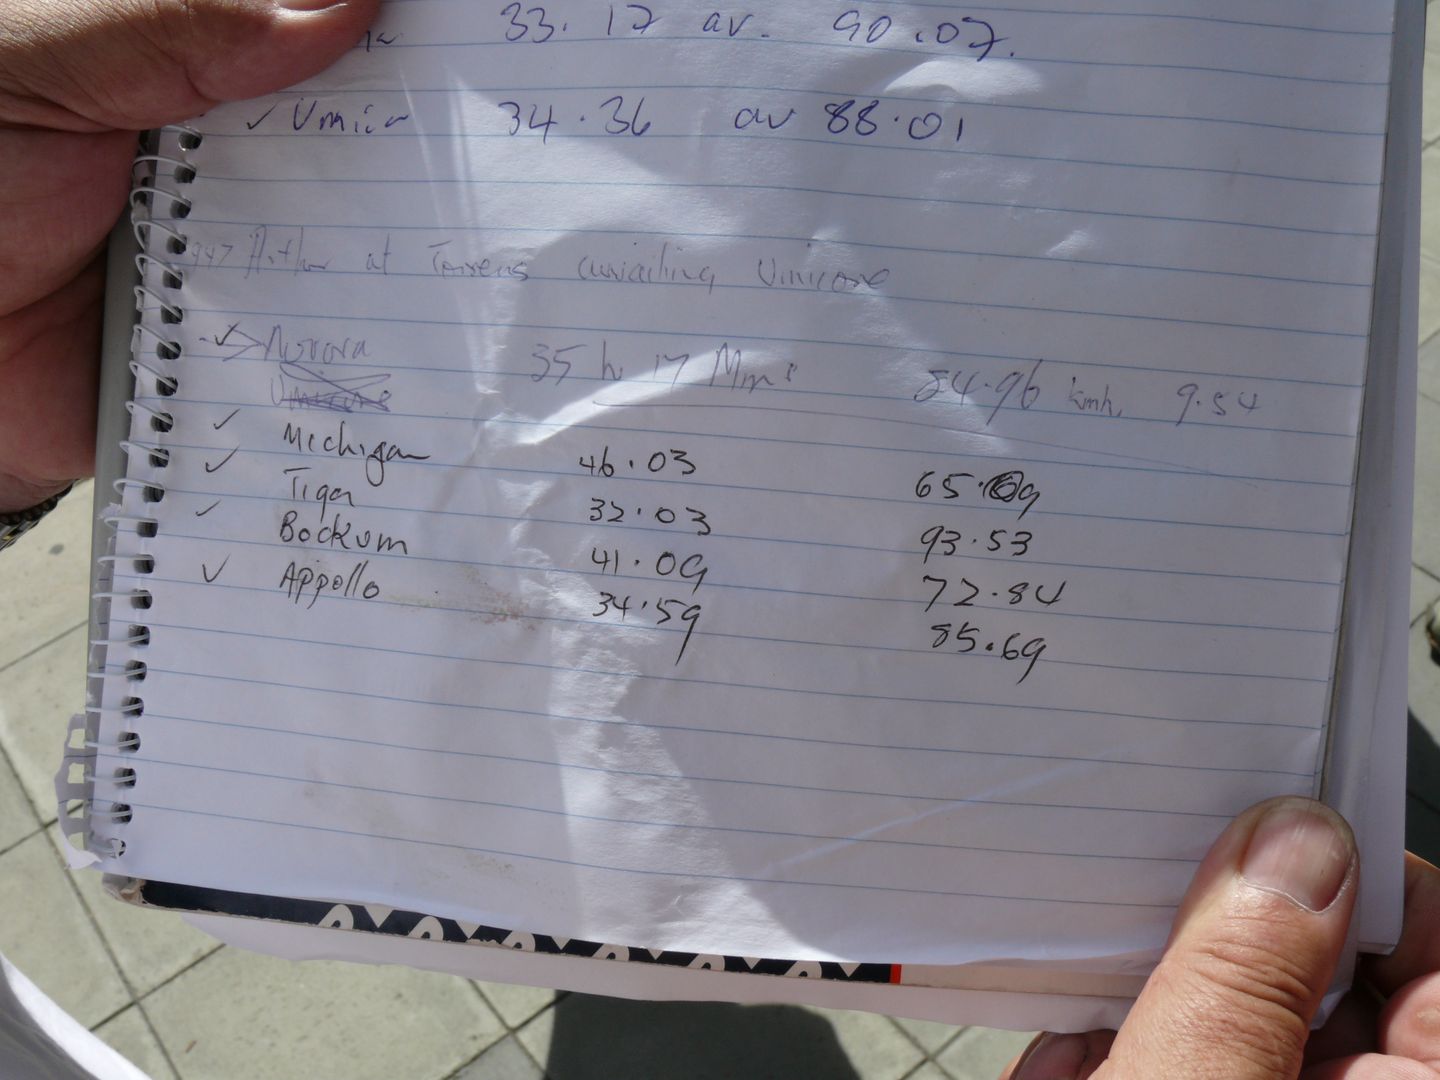 33.17 av. 90.07.
✓ Umicor 34.36 av 88.01
at Torrens awaiting Umicore
✓ Aurora 35 h 17 Mins 84.96 kmh, 9.54
Umicore
✓ Michigan 46.03 65.09
✓ Tiga 32.03 93.53
✓ Bockum 41.09 72.84
✓ Appollo 34.59 85.69